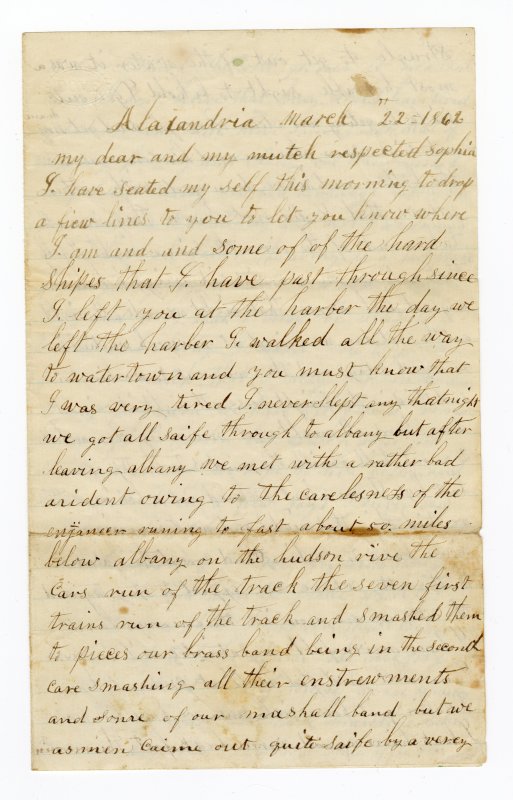 Alaxandria March 22 = 1862
my dear and my mutch respected Sophia
I. have seated my self this morning to drop
a fiew lines to you to let you know where
I am and and some of of the hard
shipes that I. have past through since
I. left you at the harber the day we
left the harber I. walked all the way
to watertown and you must know that
I was very tired I. never slept any that night
we got all saife through to albany but after
leaving albany we met with a rather bad
axident owing to the carelesness of the
enjaneer runing to fast about 50. miles
below albany on the hudson rive the
cars run of the track the seven first
trains run of the track and smashed them
to pieces our brass band being in the second
care smashing all their enstrewments
and some of our mashall band but we
as men caime out quite saife by a verey